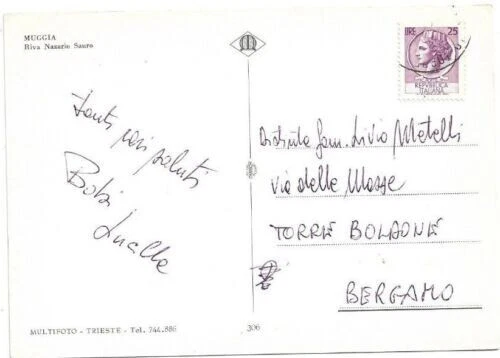 MUGGIA
Riva Nazario Sauro
LIRE 25
REPVBBLICA
ITALIANA
Tanti cari saluti
Bobi
Distinta fam. Livio Metelli
via delle Masse
TORRE BOLDONE
BERGAMO
MULTIFOTO - TRIESTE - Tel. 744.886
306